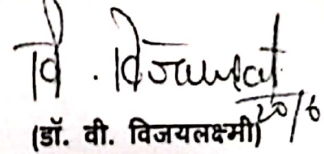 वि . विजयलक्ष्मी
20/6
(डॉ. वी. विजयलक्ष्मी)